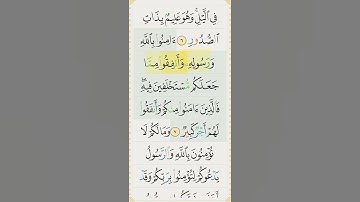 فِي ٱلَّيۡلِۚ وَهُوَ عَلِيمُۢ بِذَاتِ
ٱلصُّدُورِ ٦ ءَامِنُواْ بِٱللَّهِ
وَرَسُولِهِۦ وَأَنفِقُواْ مِمَّا
جَعَلَكُم مُّسۡتَخۡلَفِينَ فِيهِۖ
فَٱلَّذِينَ ءَامَنُواْ مِنكُمۡ وَأَنفَقُواْ
لَهُمۡ أَجۡرٞ كَبِيرٞ ٧ وَمَا لَكُمۡ لَا
تُؤۡمِنُونَ بِٱللَّهِ وَٱلرَّسُولُ
يَدۡعُوكُمۡ لِتُؤۡمِنُواْ بِرَبِّكُمۡ وَقَدۡ